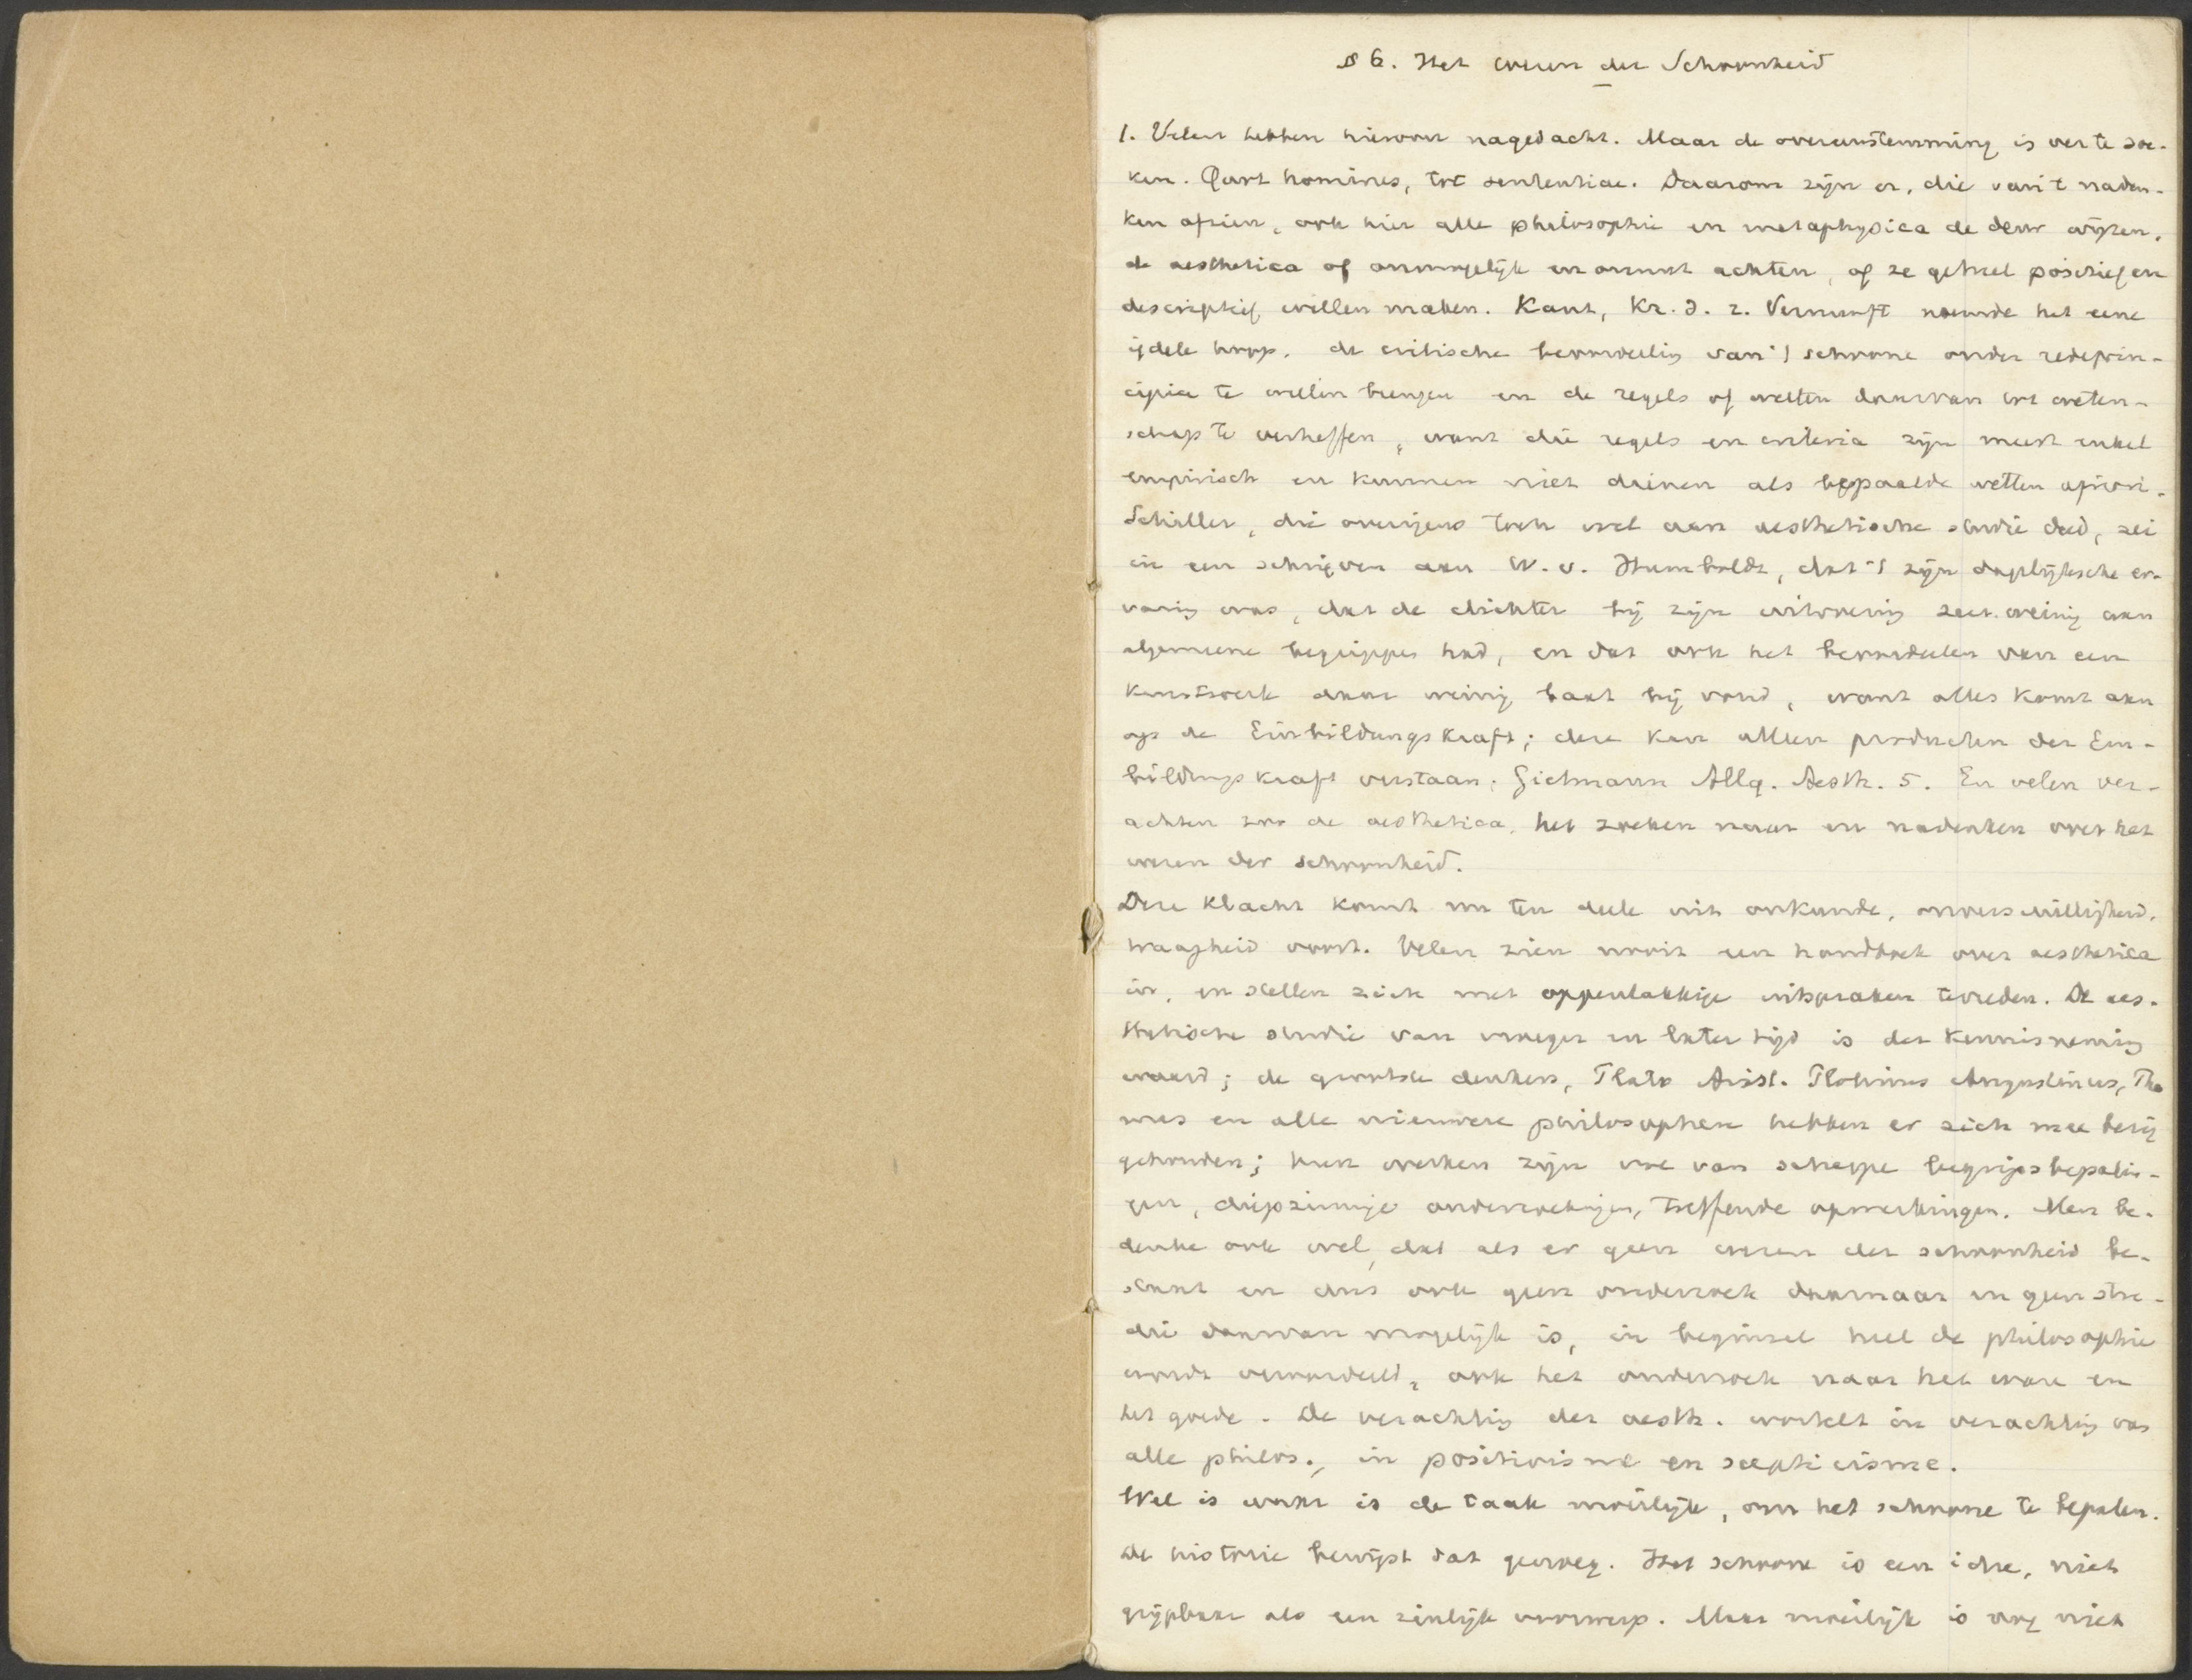 § 6. Het wezen der Schoonheid
1. Velen hebben hierover nagedacht. Maar de overeenstemming is ver te zoe-
ken. Quot homines, tot sententiae. Daarom zijn er, die van 't naden-
ken afzien, ook hier alle philosophie en metaphysica de deur wijzen,
de aesthetica of onmogelijk en onnut achten, of ze geheel positief en
descriptief willen maken. Kant, Kr. d. r. Vernunft noemde het eene
ijdele hoop, de critische beoordeelig van 't schoone onder redeprin-
cipia te willen brengen en de regels of wetten daarvan tot weten-
schap te verheffen, want die regels en criteria zijn meest enkel
empirisch en kunnen niet dienen als bepaalde wetten apriori.
Schiller, die overigens toch wel aan aesthetische studie deed, zei
in een schrijven aan W. v. Humboldt, dat 't zijn dagelijksche er-
varig was, dat de dichter bij zijn uitvoerig zeer weinig aan
algemeene begrippen had, en dat ook het beoordeelen van een
kunstwerk daar weinig baat bij vond, want alles komt aan
op de Einbildungskraft; deze kan alleen producten der Ein-
bildungskraft verstaan. Allg. Aesth. 5. En velen ver-
achten zoo de aesthetica, het zoeken naar en nadenken over het
wezen der schoonheid.
Deze klacht komt nu ten deele uit onkunde, onverschilligheid,
traagheid voort. Velen zien nooit een handboek over aesthetica
in, en stellen zich met oppervlakkige uitspraken tevreden. De aes-
thetische studie van vroeger en later tijd is der kennisnemig
waard; de grootste denkers, Plato Arist. Plotinus Augustinus, Tho
mas en alle nieuwere philosophen hebben er zich mee bezig
gehouden; hun werken zijn vol van scherpe begripsbepalin-
gen, diepzinnige onderzoekingen, treffende opmerkingen. Men be-
denke ook wel, dat als er geen wezen der schoonheid be-
staat en dus ook geen onderzoek daarnaar en geen stu-
die daarvan mogelijk is, in beginsel heel de philosophie
wordt veroordeeld, ook het onderzoek naar het ware en
het goede. De verachtig der aesth. wortelt in verachtig van
alle philos., in positivisme en scepticisme.
Wel is waar is de taak moeilijk, om het schoone te bepalen.
De historie bewijst dat genoeg. Het schoone is een idee, niet
grijpbaar als een zinlijk voorwerp. Maar moeilijk is nog niet